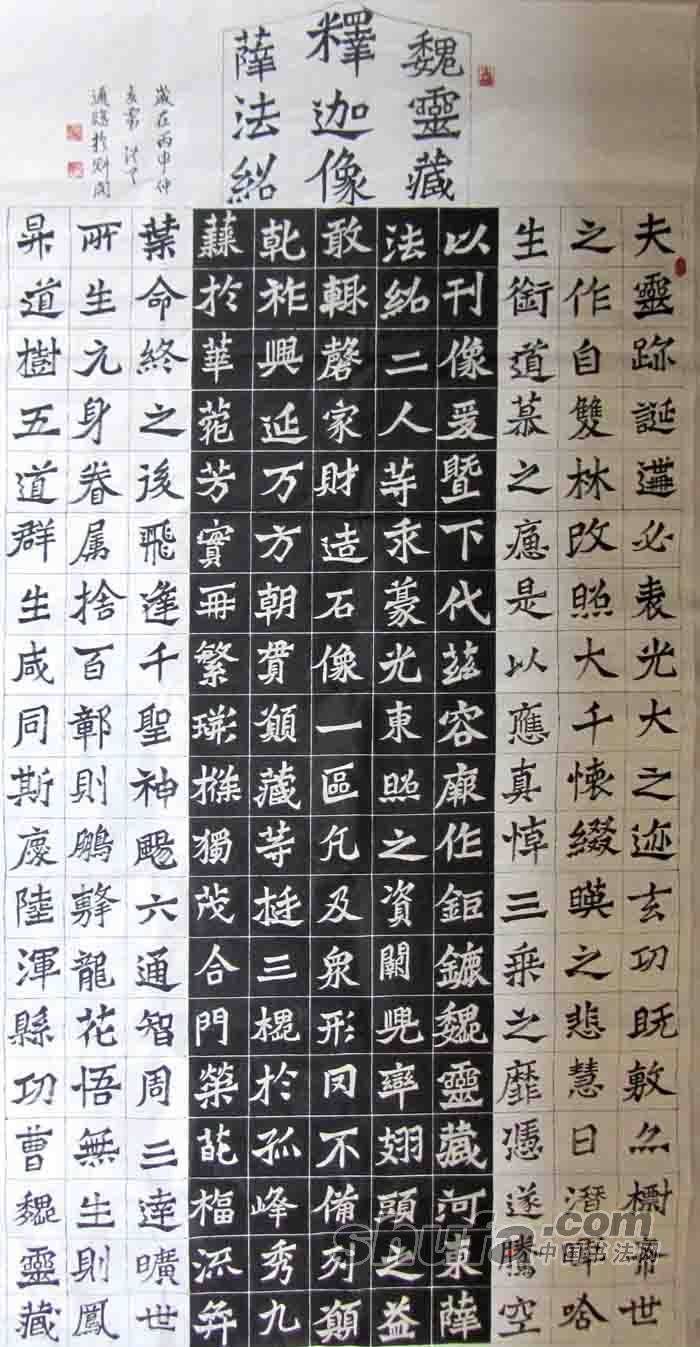 魏靈藏
釋迦像
薛法紹
夫靈跡誕遘必表光大之迹玄功既敷亦標希世
之作自雙林改照大千懷綴暎之悲慧日潛暉唅
生銜道慕之痛是以應真悼三乘之靡憑遂騰空
以刊像爰暨下代茲容廓作鉅鏕魏靈藏河東薛
法紹二人等求豪光東照之資闕兜率翅頭之益
敢輒磬家財造石像一區凡及眾形罔不備列願
乾祚興延万方朝貫願藏等挺三槐於孤峰秀九
蕀於華菀芳實再繁荊條獨茂合門榮葩福流弈
葉命終之後飛逢千聖神颺六通智周三達曠世
所生元身眷属捨百鄣則鵬擊龍花悟無生則鳳
昇道樹五道群生咸同斯慶陸渾縣功曹魏靈藏
歲在丙申仲
shufa.com
中国书法网